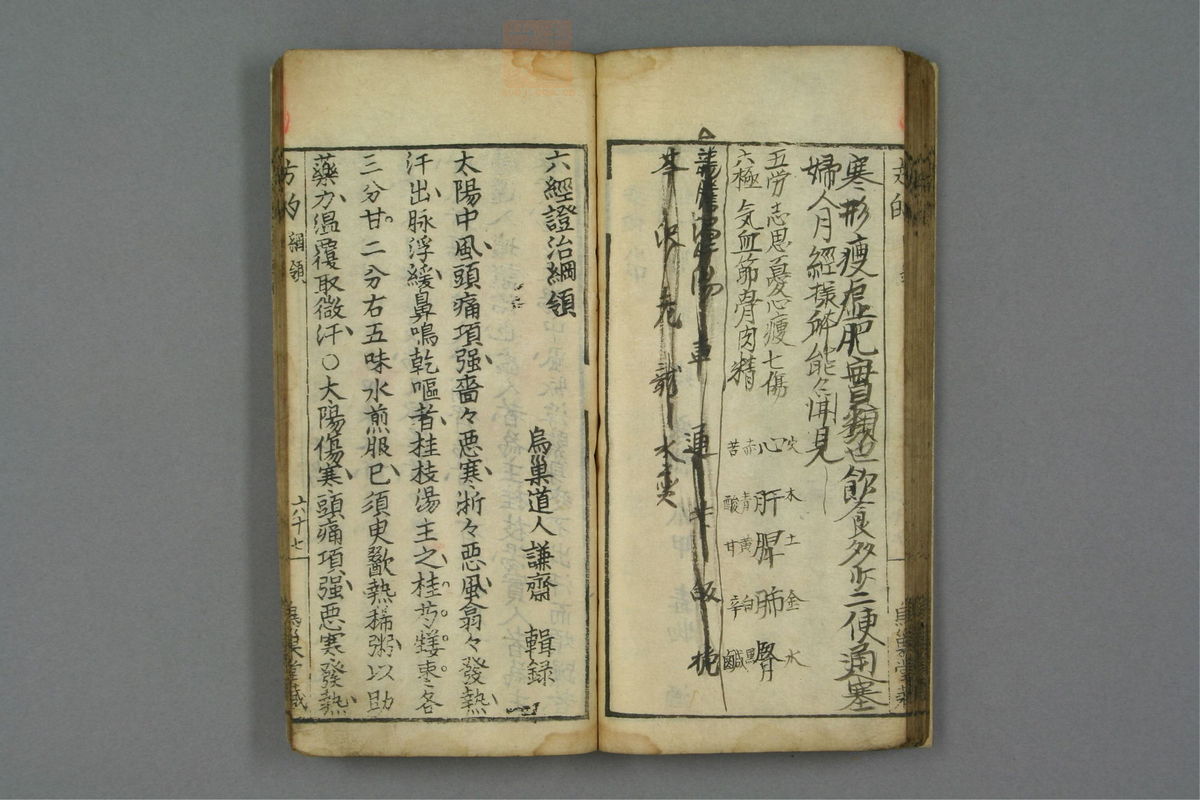 寒形瘦虛肥實類也飲食多少二使通塞
婦人月經様躰能々聞見
五労志思憂心瘦七傷
六極気血筋骨肉精
火 木 土 金 水
心 肝 脾 肺 腎
赤 青 黄 白 黒
苦 酸 甘 辛 鹹
六經證治綱領
烏巢道人謙齋 輯録
太陽中風頭痛項强嗇々悪寒淅々悪風翕々發熱
汗出脉浮緩鼻鳴乾嘔者桂枝湯主之桂芍薑棗各
三分甘二分右五味水煎服已須臾歠熱稀粥以助
藥力温覆取微汗〇太陽傷寒頭痛項强悪寒發熱
方的 綱領 六十七 烏巢堂藏